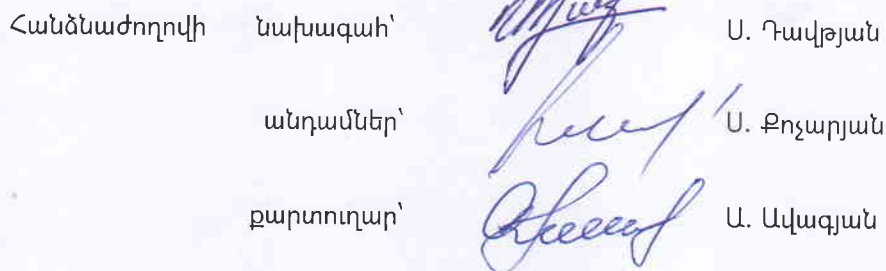 Հանձնաժողովի նախագահ՝ Ս. Դավթյան
անդամներ՝ Ս. Քոչարյան
քարտուղար՝ Ա. Ավագյան